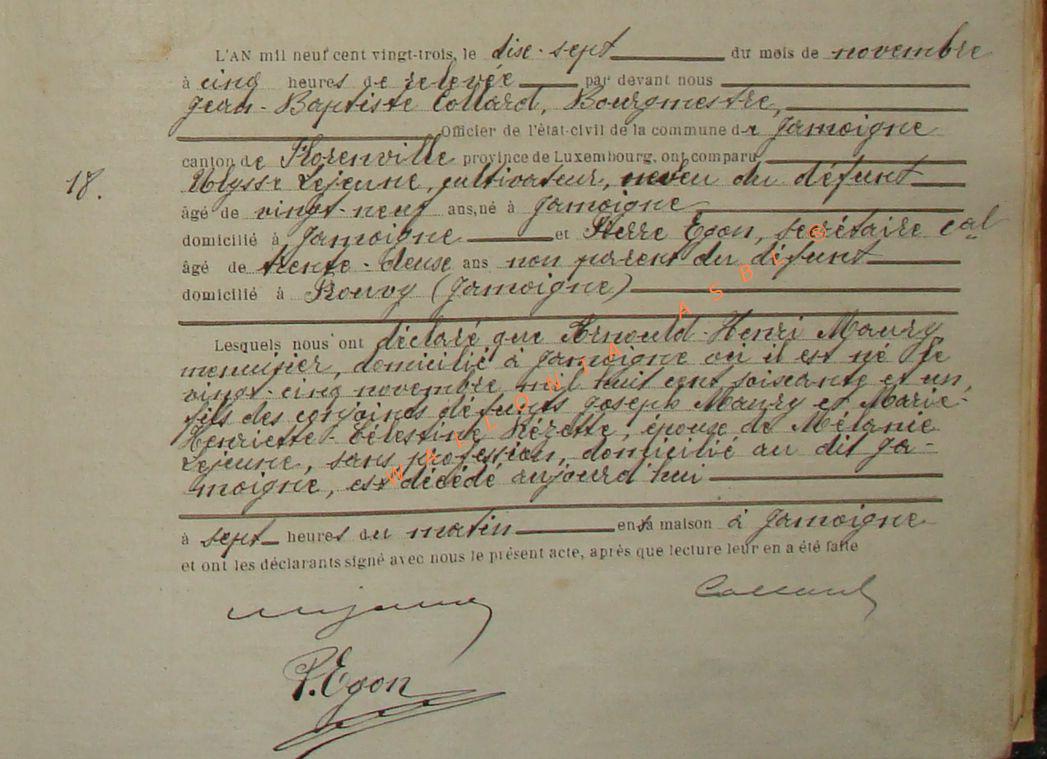 L'AN mil neuf cent vingt-trois, le dix-sept du mois de novembre
à cinq heures de relevée par devant nous
Jean-Baptiste Collard, Bourgmestre,
Officier de l'état-civil de la commune de Jamoigne
canton de Florenville province de Luxembourg, ont comparu
18. Ulysse Lejeune, cultivateur, neveu du défunt
âgé de vingt-neuf ans, né à Jamoigne
domicilié à Jamoigne et Pierre Egon, secrétaire cal
âgé de trente-deux ans non parent du défunt
domicilié à Rouvoy (Jamoigne)
Lesquels nous ont déclaré que Arnould-Henri Maury,
menuisier, domicilié à Jamoigne où il est né le
vingt-cinq novembre mil huit cent soixante et un,
fils des conjoints défunts Joseph Maury et Marie-
Henriette-Célestine Rézette, époux de Mélanie
Lejeune, sans profession, domicilié au dit Ja-
moigne, est décédé aujourd'hui
à sept heures du matin en sa maison à Jamoigne
et ont les déclarants signé avec nous le présent acte, après que lecture leur en a été faite
Collard
P. Egon
WALLONIA ASBL